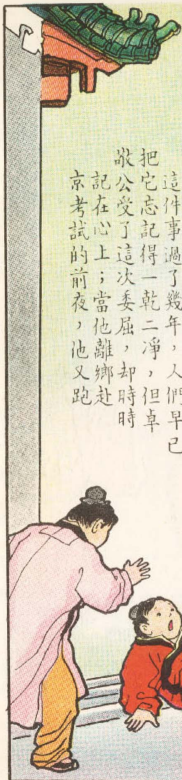 這件事過了幾年，人們早已
把它忘記得一乾二凈，但卓
敬公受了這次委屈，却時時
記在心上；當他離鄉赴
京考試的前夜，他又跑